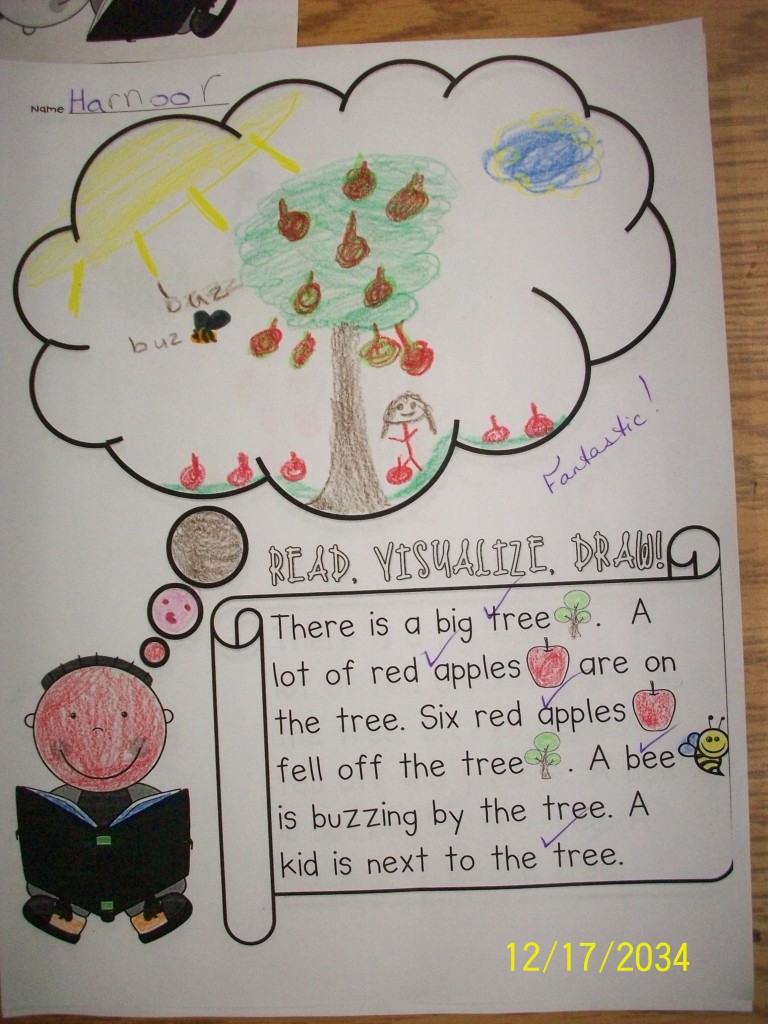 Name Harnoor
buzz
buz
Fantastic!
READ, VISUALIZE, DRAW!
There is a big tree. A
lot of red apples are on
the tree. Six red apples
fell off the tree. A bee
is buzzing by the tree. A
kid is next to the tree.
12/17/2034